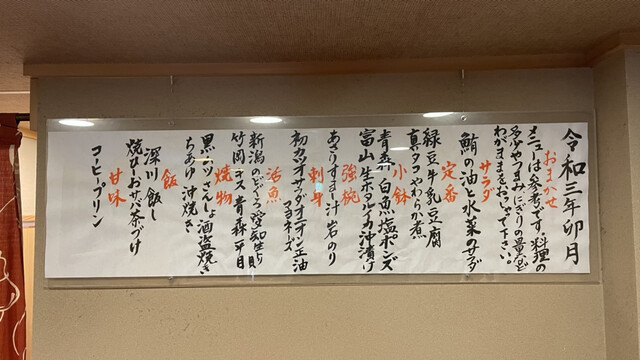 令和三年卯月
おまかせ
メニューは参考です。料理の
多少やつまみ、にぎりの量など
わがままをおっしゃって下さい。
サラダ
鮪の油と水菜のサラダ
定番
緑豆牛乳豆腐
真タコやわらか煮
小鉢
青森 白魚塩ポンズ
富山 生ホタルイカ沖漬け
強椀
あさりすまし汁岩のり
刺身
初カツオ サラダオニオン正油
マヨネーズ
活魚
新潟のどぐろ 愛知生とり貝
竹岡 青森平目
焼物
黒ムツさんしょ酒盗焼き
ちあゆ 沖焼き
飯
深川飯し
焼ひーおサバ茶づけ
甘味
コーヒープリン